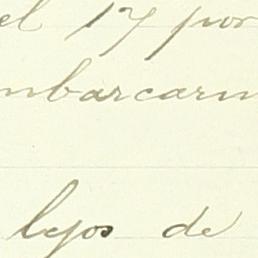 el 17 por
mbarcarm
lejos de